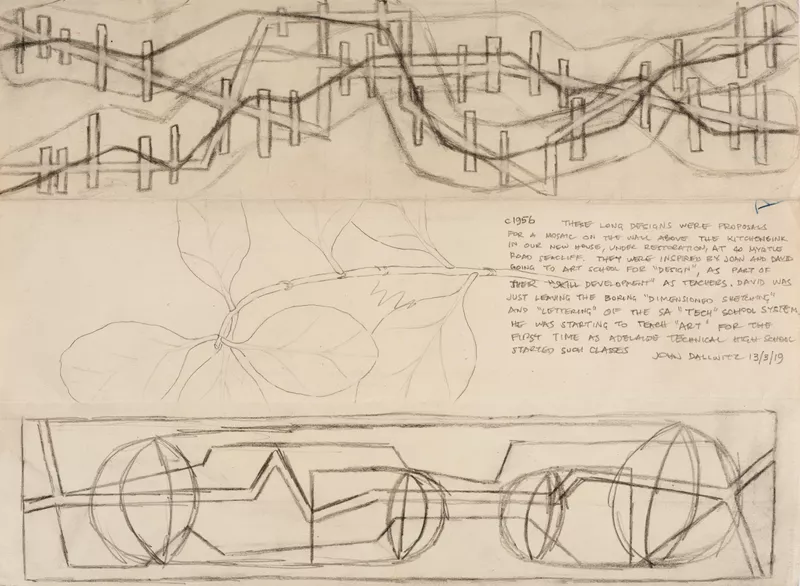 c1956 THESE LONG DESIGNS WERE PROPOSALS
FOR A MOSAIC ON THE WALL ABOVE THE KITCHENSINK
IN OUR NEW HOUSE, UNDER RESTORATION, AT 60 MYRTLE
ROAD SEACLIFF. THEY WERE INSPIRED BY JOAN AND DAVID
GOING TO ART SCHOOL FOR "DESIGN", AS PART OF
THEIR "SKILL DEVELOPMENT" AS TEACHERS. DAVID WAS
JUST LEAVING THE BORING "DIMENSIONED SKETCHING"
AND "LETTERING" OF THE SA "TECH" SCHOOL SYSTEM,
HE WAS STARTING TO TEACH "ART" FOR THE
FIRST TIME AS ADELAIDE TECHNICAL HIGH SCHOOL
STARTED SUCH CLASSES
JOHN DALLWITZ 13/3/19